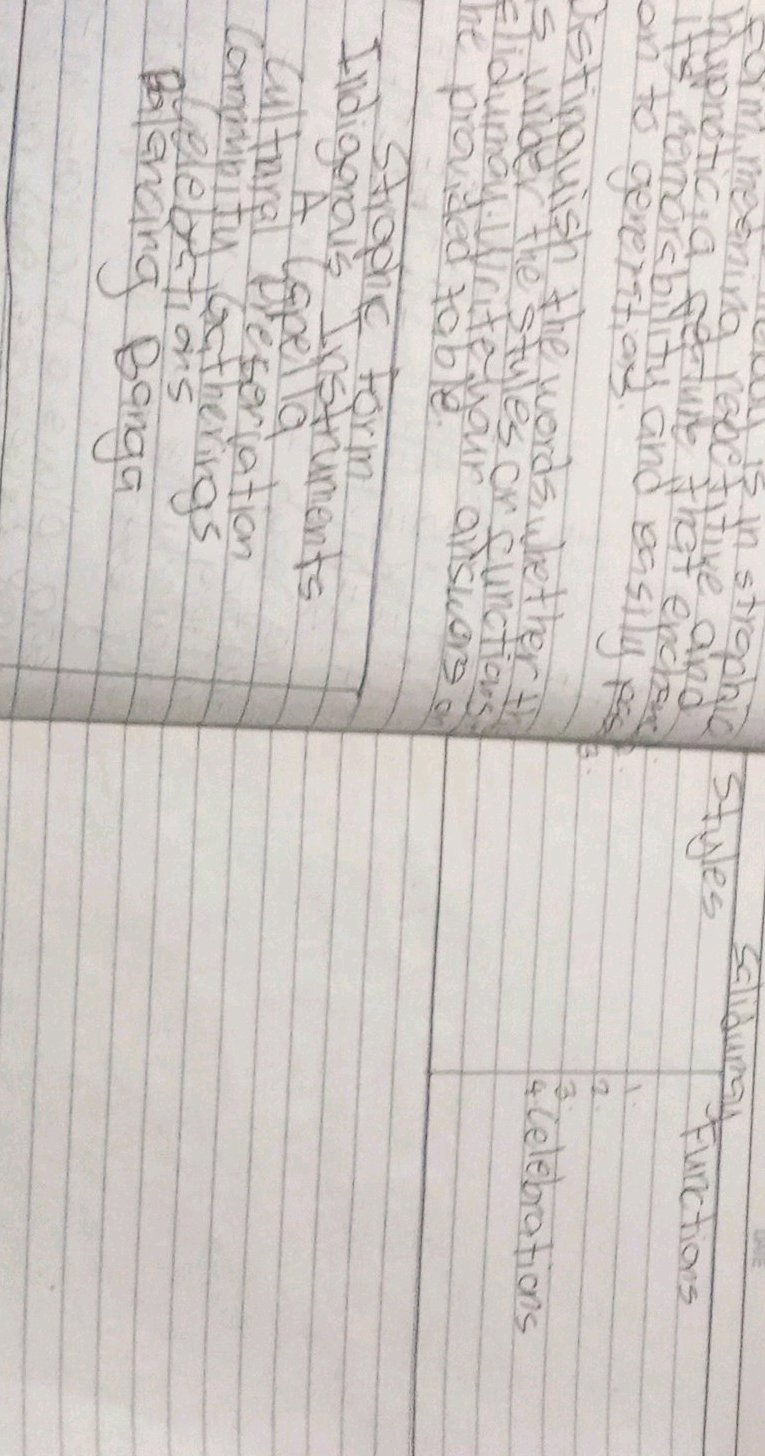 is in strophic
form, meaning repetitive and
hypnotic, a feature that
memorability and easily
on to generations.
the words whether
under the styles or functions
Write your answers
provided table.
Strophic form
Indigenous Instruments
A Capella
Cultural Preseriation
Community Gatherings
Celebrations
Balancing Banga
Salidumay
Styles Functions
1.
2.
3.
3.
4. Celebrations
DATE